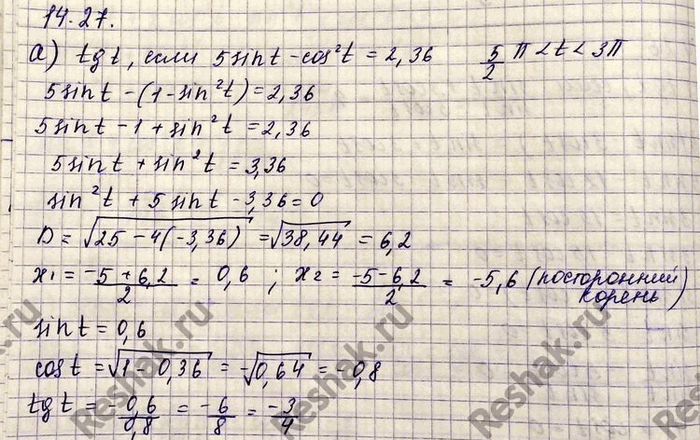 14.27.
а) tg t, если 5sint - cos²t = 2,36 5/2 π < t < 3π
5sint - (1 - sin²t) = 2,36
5sint - 1 + sin²t = 2,36
5sint + sin²t = 3,36
sin²t + 5sint - 3,36 = 0
D = √(25 - 4(-3,36)) = √38,44 = 6,2
x₁ = (-5 + 6,2)/2 = 0,6 ; x₂ = (-5 - 6,2)/2 = -5,6 (посторонний корень)
sint = 0,6
cost = √(1 - 0,36) = -√0,64 = -0,8
tg t = 0,6/0,8 = -6/8 = -3/4
Reshak.ru
Reshak.ru
Reshak.ru